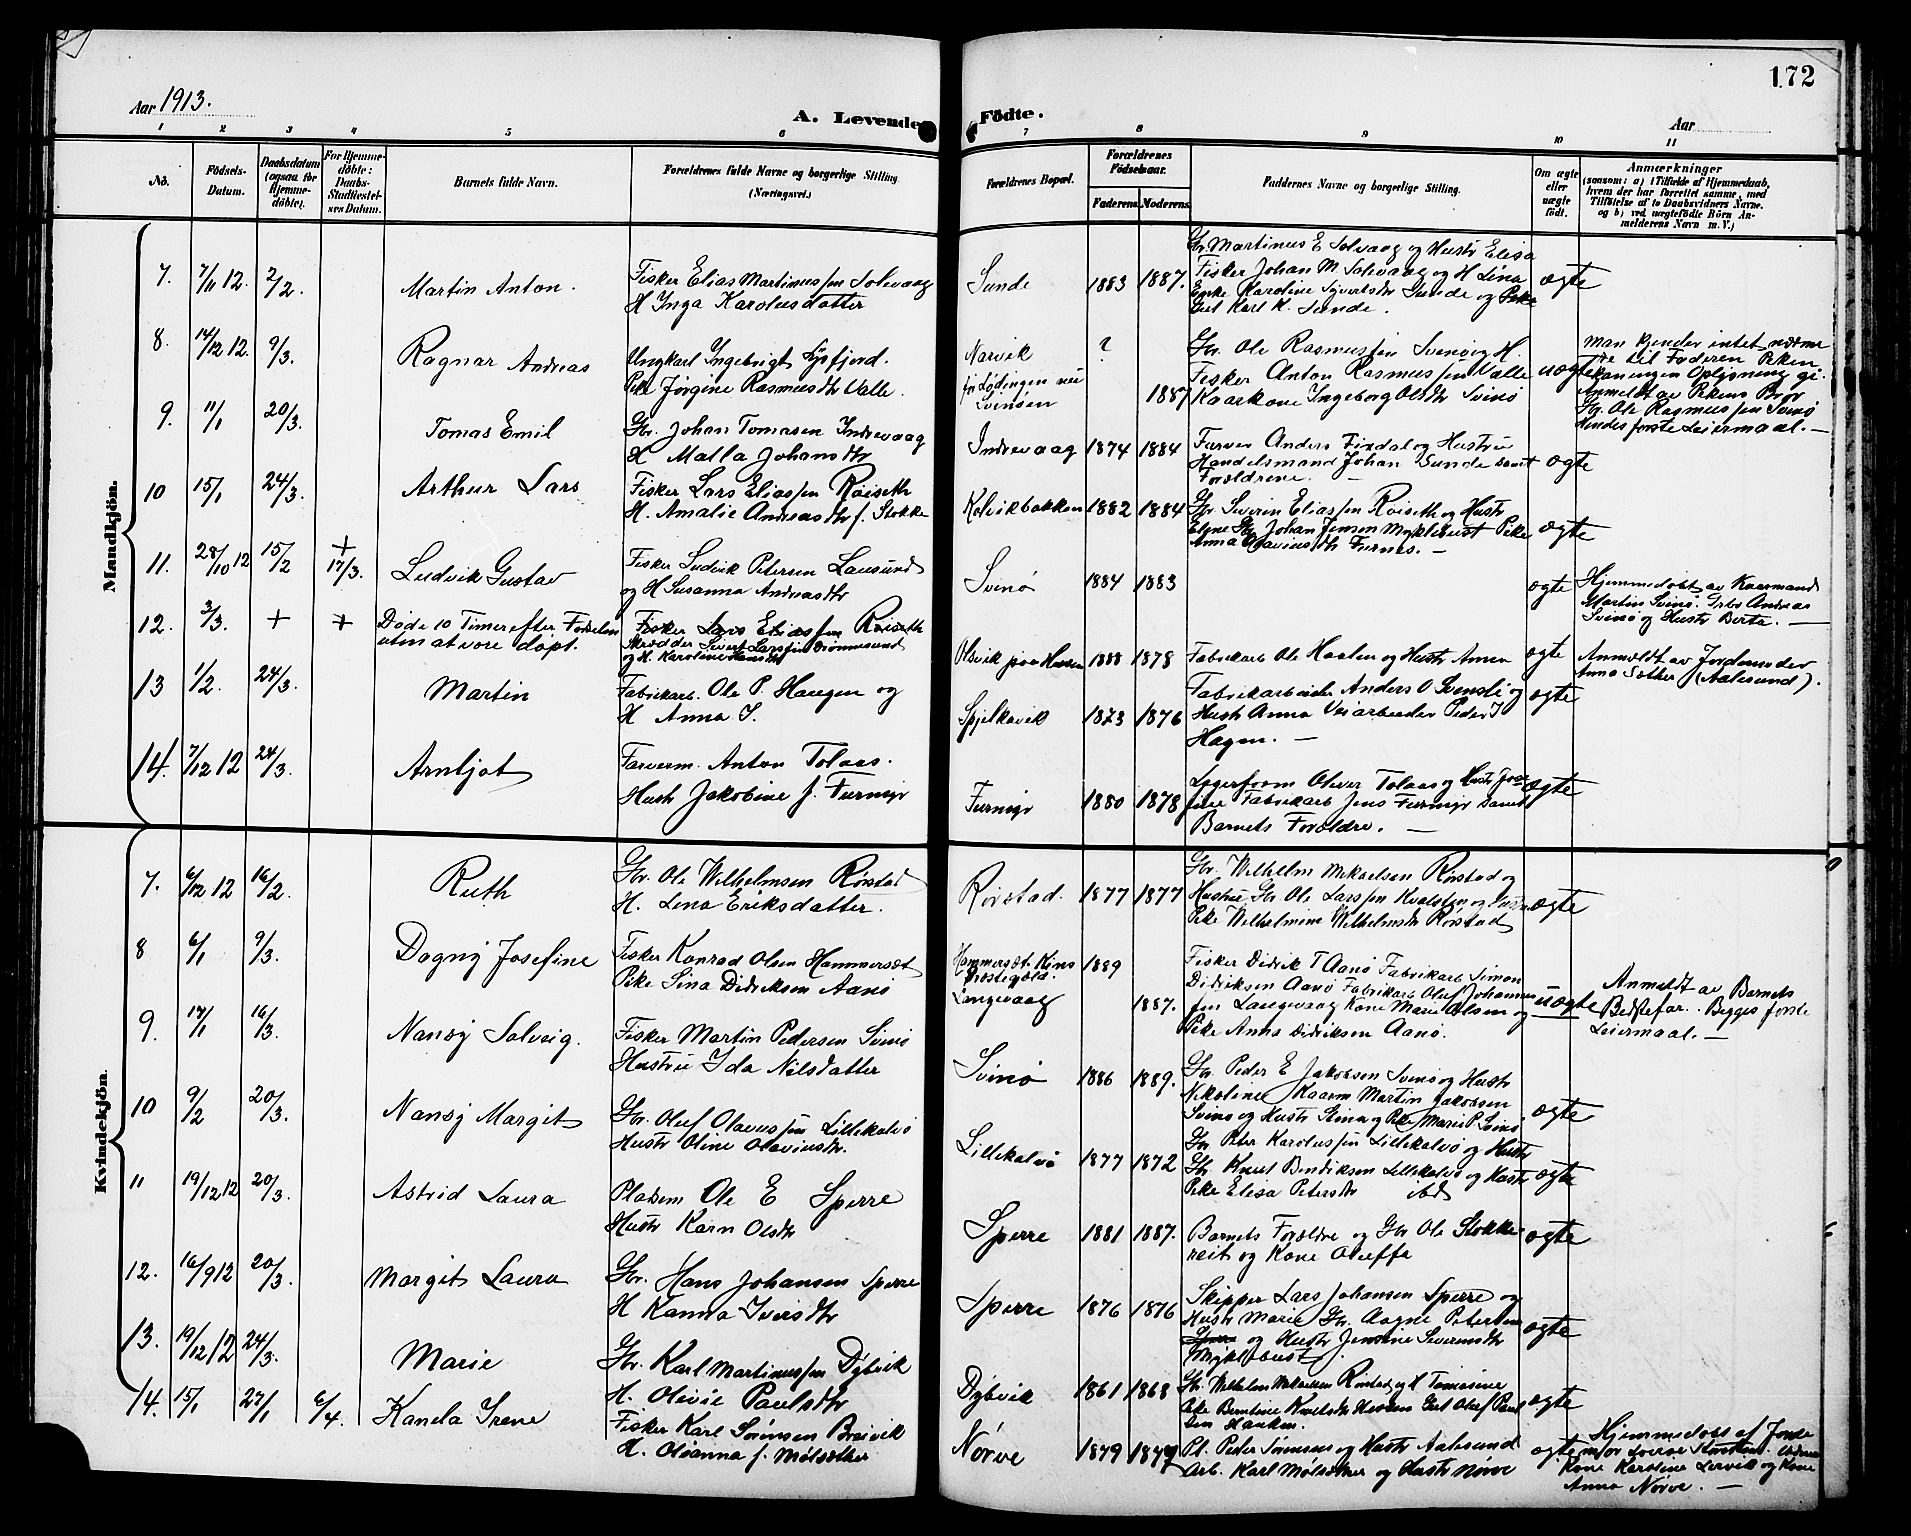 172
Aar 1913.
A. Levende Födte.
Aar
1 2 3 4 5 6 7 8 9 10 11
No.
Födsels-Datum.
Daabsdatum (ogsaa for Hjemme-döbte).
For Hjemme-döbte: Daabs-Stadfæstel-ses Datum.
Barnets fulde Navn.
Forældrenes fulde Navne og borgerlige Stilling
(Næringsvei.)
Forældrenes Bopæl.
Forældrenes Födselsaar.
Faderens
Moderens
Faddernes Navne og borgerlige Stilling.
Om ægte eller uægte født.
Anmærkninger
(saasom: a) i Tilfælde af Hjemmedaab,
hvem der har forrettet samme, med
Tilföielse af to Daabsvidners Navne.
og b) ved uægtefödte Börn An-
melderens Navn m. V.)
Mandkjön.
7. 7/11 12. 2/2. Martin Anton.
Fisker Elias Martinussen Solevaag
H Inga Karolusdatter
Sunde 1883 1887.
Gbr Martinus E Solvaag og Hustr Elisa
Fisker Johan M Solevaag og H Lina
Enke Karoline Syvertsdr Sunde og Pike
Gul Karl K. Sunde.
ægte
8. 14/12 12. 9/3. Ragnar Andreas
Ungkarl Ingebrigt Lysfjord.
Pike Jørgine Rasmusdtr Valle.
Narvik
for Lødingen nu
Svinøen
? 1887
Gbr. Ole Rasmussen Svinø og H.
Fisker Anton Rasmussen Valle
Kaarkone Ingeborg Olsdtr Svinø
uægte
Man kjender intet nærme
re til Faderen Piken
kan ingen Oplysning gi.
Anmeldt av Pikens Bror
Gbr. Ole Rasmussen Svinø
hendes første Leiermaal. —
9. 11/1 20/3. Tomas Emil
Gbr. Johan Tomasen Indrevaag
H Malla Johansdtr
Indrevaag 1874 1884
Farver Anders Findal og Hustru
Handelsmand Johan Sunde samt
Forældrene. —
ægte
10 15/1 24/3. Arthur Lars
Fisker Lars Eliassen Røiseth
H. Amalie Andreasdtr f. Stokke
Kolvikbakken 1882 1884
Gbr Severin Eliassen Røiseth og Hustr
Eline Gbr Johan Jensen Myklebust Pike
Anna Olaviusdtr Furnes. —
ægte
11. 28/10 12 15/2 + 17/3. Ludvik Gustav
Fisker Ludvik Petersen Lausund
og H Susanna Andreasdtr
Svinø 1884 1883
ægte
Hjemmedøbt av Kaarmand
Martin Svinø. Gbr Andreas
Svinø og Hustr Berte. —
12. 3/3. + + Døde 10 Timer efter Fødselen
uten at være døpt.
Fisker Lars Eliassen Røiseth
Skrædder Sivert Larssen Drönnesund
og H. Karoline Hansdtr
Olsvik paa Hessen 1888 1878
Fabrikarb Ole Haalen og Hustr Anna
ægte
Anmeldt av Jordmoder
Anna Sæther (Aalesund).
13 1/2. 24/3. Martin
Fabrikarb. Ole P. Haugen og
H Anna I.
Spjelkavik 1873 1876
Fabrikarbeider Anders O Svensli og
Hustr Anna Veiarbeider Peder I
Hagen. —
ægte
14. 7/12 12 24/3. Arnljot
Farverm. Anton Tolaas.
Hustr Jakobine f. Furmyr
Furmyr 1880 1878
Lygerform Oliver Tolaas og Hustr Jose
fine Fabrikarb Jens Furmyr samt
Barnets Forældre. —
ægte
Kvindekjön.
7. 6/12 12 16/2. Ruth
Gbr. Ole Wilhelmsen Rørstad
H. Lina Eriksdatter.
Rørstad. 1877 1877
Gbr. Wilhelm Mikaelsen Rørstad og
Hustru Gbr Ole Larssen Kvalsten og
Pike Wilhelmine Wilhelmsdtr Rørstad
ægte
8 6/1 9/3. Dagny Josefine
Fisker Konrad Olsen Hammersæt
Pike Sina Didriksen Aanø
Hammersæt. Kins
Prestegjeld.
Langevaag
1889 1887.
Fisker Didrik T Aanø Fabrikarb. Simon
Didriksen Aanø Fabrikarb Oluf Johannes
sen Langevaag Kone Marie Olsen og
Pike Anna Didriksen Aanø.
uægte
Anmeldt av Barnets
Bedstefar. Begges første
Leiermaal. —
9. 14/1 16/3. Nansy Solveig.
Fisker Martin Pedersen Svinø
Hustru Ida Nilsdatter
Svinø 1886 1889.
Gbr. Peder E Jakobsen Svinø og Hustr
Nikoline Kaarm Martin Jakobsen
Svinø og Hustr Stina og Pike Marie P. Svinø
ægte
10 9/2 20/3. Nansy Margit
Gbr. Oluf Olavussen Lillekalvø
Hustr Oline Olaviusdtr.
Lillekalvø 1877 1872
Gbr. Peter Karolussen Lillekalvø og Hustr
Gbr. Knut Bendriksen Lillekalvø og Hustr
Pike Elisa Petersdtr ibd
ægte
11 19/12 12 20/3. Astrid Laura
Pladsm Ole E Sperre
Hustr Karn Olsdtr
Sperre 1881 1887.
Barnets Forældre og Gbr Ole Stokke-
reit og Kone Oluffa
ægte
12. 16/9 12 20/3. Margit Laura
Gbr. Hans Johansen Sperre
H Kanna Iversdtr
Sperre 1876 1876
Skipper Lars Johansen Sperre og
Hustr Marie Gbr. Aagne Petersen
Sperre og Hustr Jensine Severinsdtr
Myklebust.
ægte
13. 19/12 12 24/3. Marie
Gbr. Karl Martinussen Dybvik
H. Olivie Paulsdtr
Dybvik 1861 1868
Gbr. Wilhelm Mikaelsen Rørstad og H Tomasine
Pike Berntine Karlsdtr Hessen Gul Oluf Paul
sen Hauken.
ægte
14. 15/1 27/1 6/4. Kanela Irene
Fisker Karl Sørensen Breivik
H. Oleanna f. Molsæther
Nørve 1879 1877
Pl. Peder Sørensen og Hustr Aalesund
Arb. Karl Molsæther og Hustr Nørve
ægte
Hjemmedøbt af Jorde
mor Sverre Storstein.
Kone Karoline Lervik og Kone
Anna Nørve. —